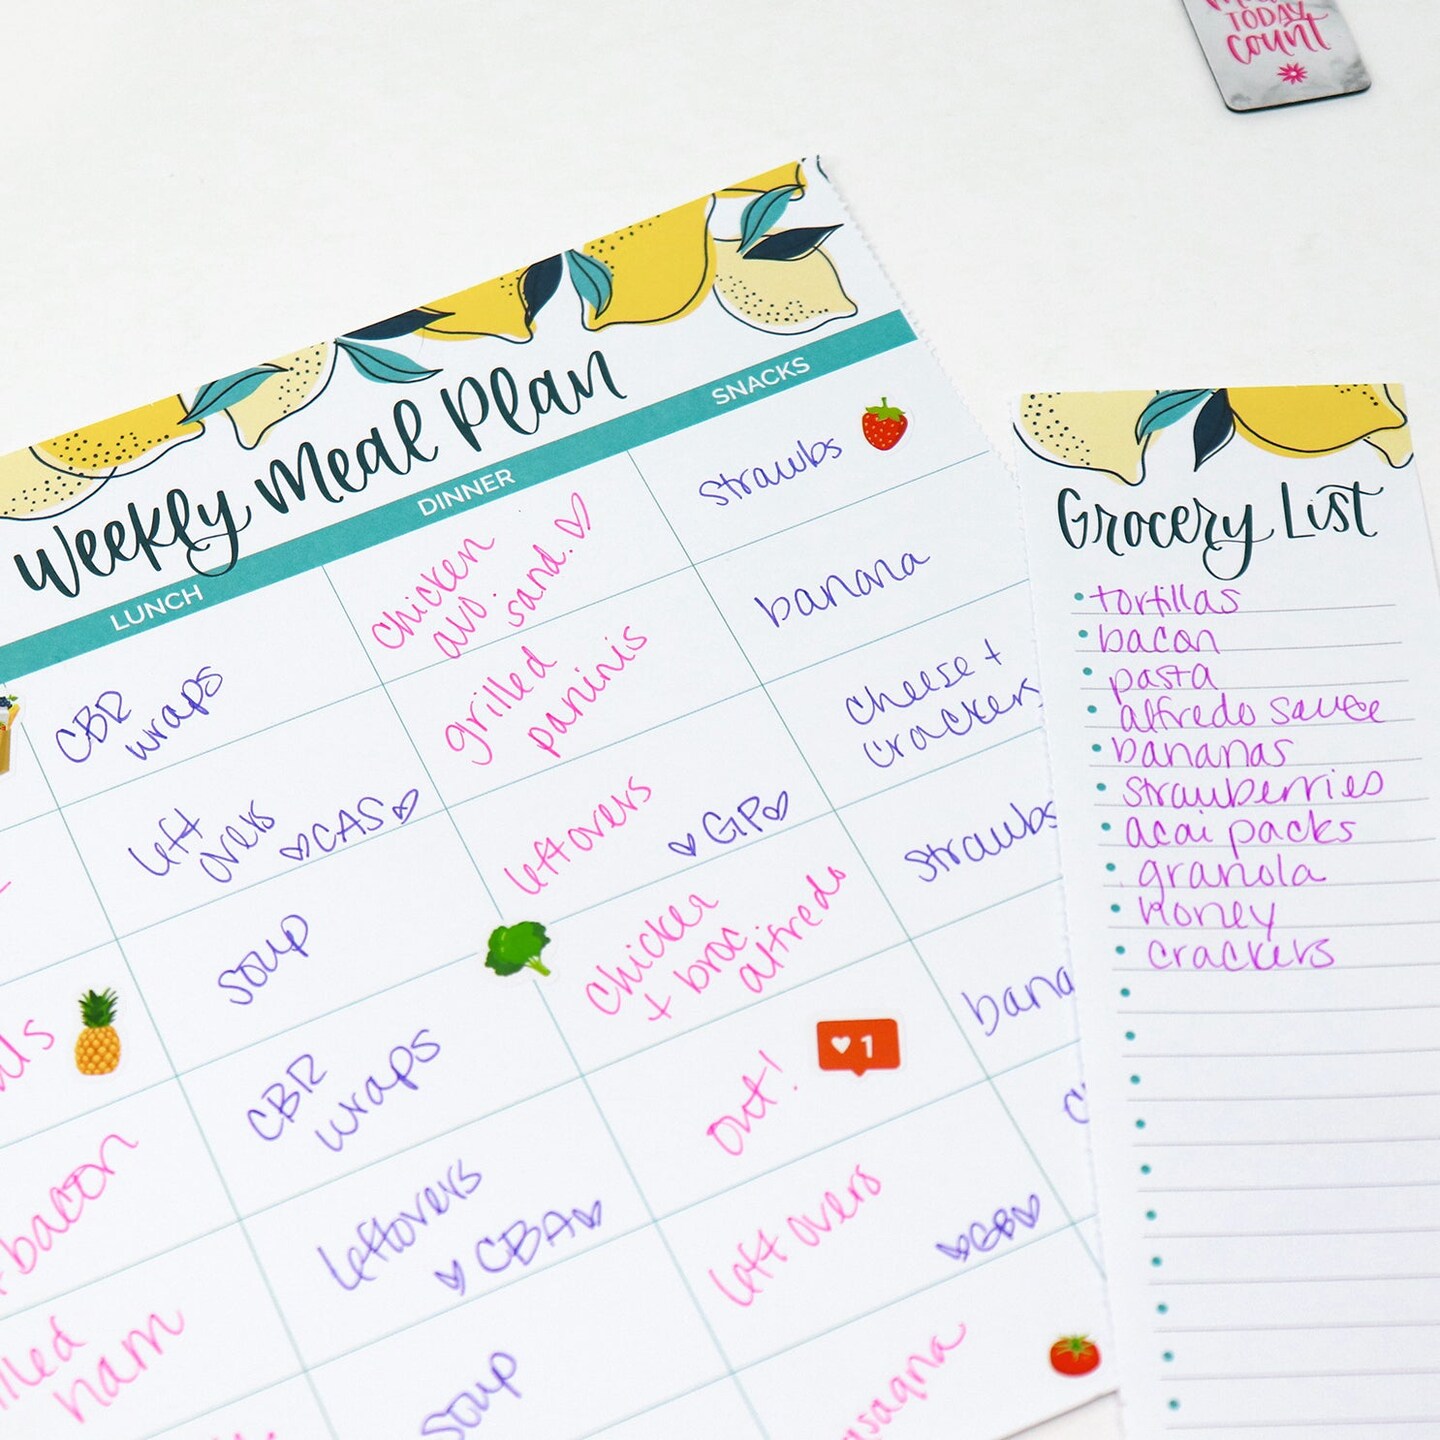 TODAY
count
Weekly Meal Plan
LUNCH
DINNER
SNACKS
CBR
wraps
chicken
avo.
sand.
strawbs
left
overs
CAS
grilled
paninis
banana
soup
leftovers
GP
cheese +
crackers
CBR
wraps
chicken
+ broc
alfredo
strawbs
bacon
leftovers
CBA
out!
1
bana
ham
soup
left overs
GB
Grocery List
tortillas
bacon
pasta
alfredo sauce
bananas
strawberries
acai packs
granola
honey
crackers